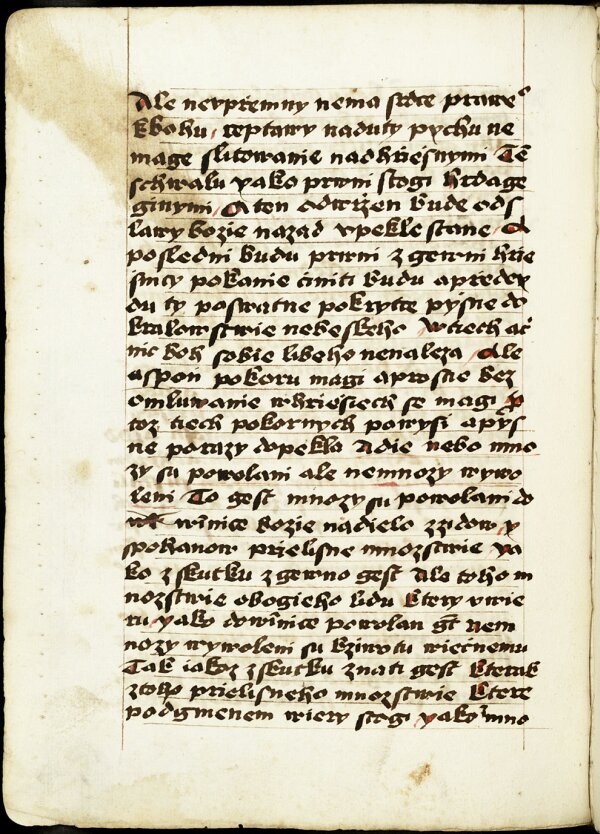 Ale nevprzemny nema srdce prawe°
kbohu, reptawy naduty pychu ne
mage slitowanie nadhrziesnymi Te
schwalu yako prwni stogi hrdage
ginymi, A ten odwrzen bude ods
lawy bozie nazad vpekle stane A
posledni budu prwni z gewni hrie
snicy pokanie ciniti budu apredey
du ty postwatne pokrytce pysne do
kralowstwie nebeskeho wtiech ac
nic boh sobie libeho nenaleza Ale
aspon pokoru magi aprostie bez
omluwanie whriesiech se magi
toz tiech pokornych powysi apys
ne porazy dopekla Adie nebo mno
zy su powolani ale nemnozy wywo
leni To gest mnozy su powolani do
winice bozie nadielo zzidow y
spohanow prielisne mnozstwie ya
ko zskutku zgewno gest Ale toho m
nozstwie obogieho lidu ktery vwie
ru yako dowinice powolan gt nem
nozy wywoleni su kziwotu wiecnemu
Tak iakoz zskutku znati gest kterak
ztoho prielisneho mnozstwie ktere
podgmenem wiery stogi yako mno